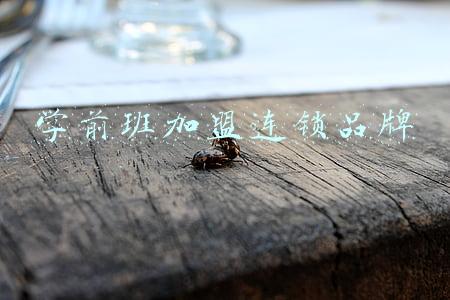 学前班加盟连锁品牌